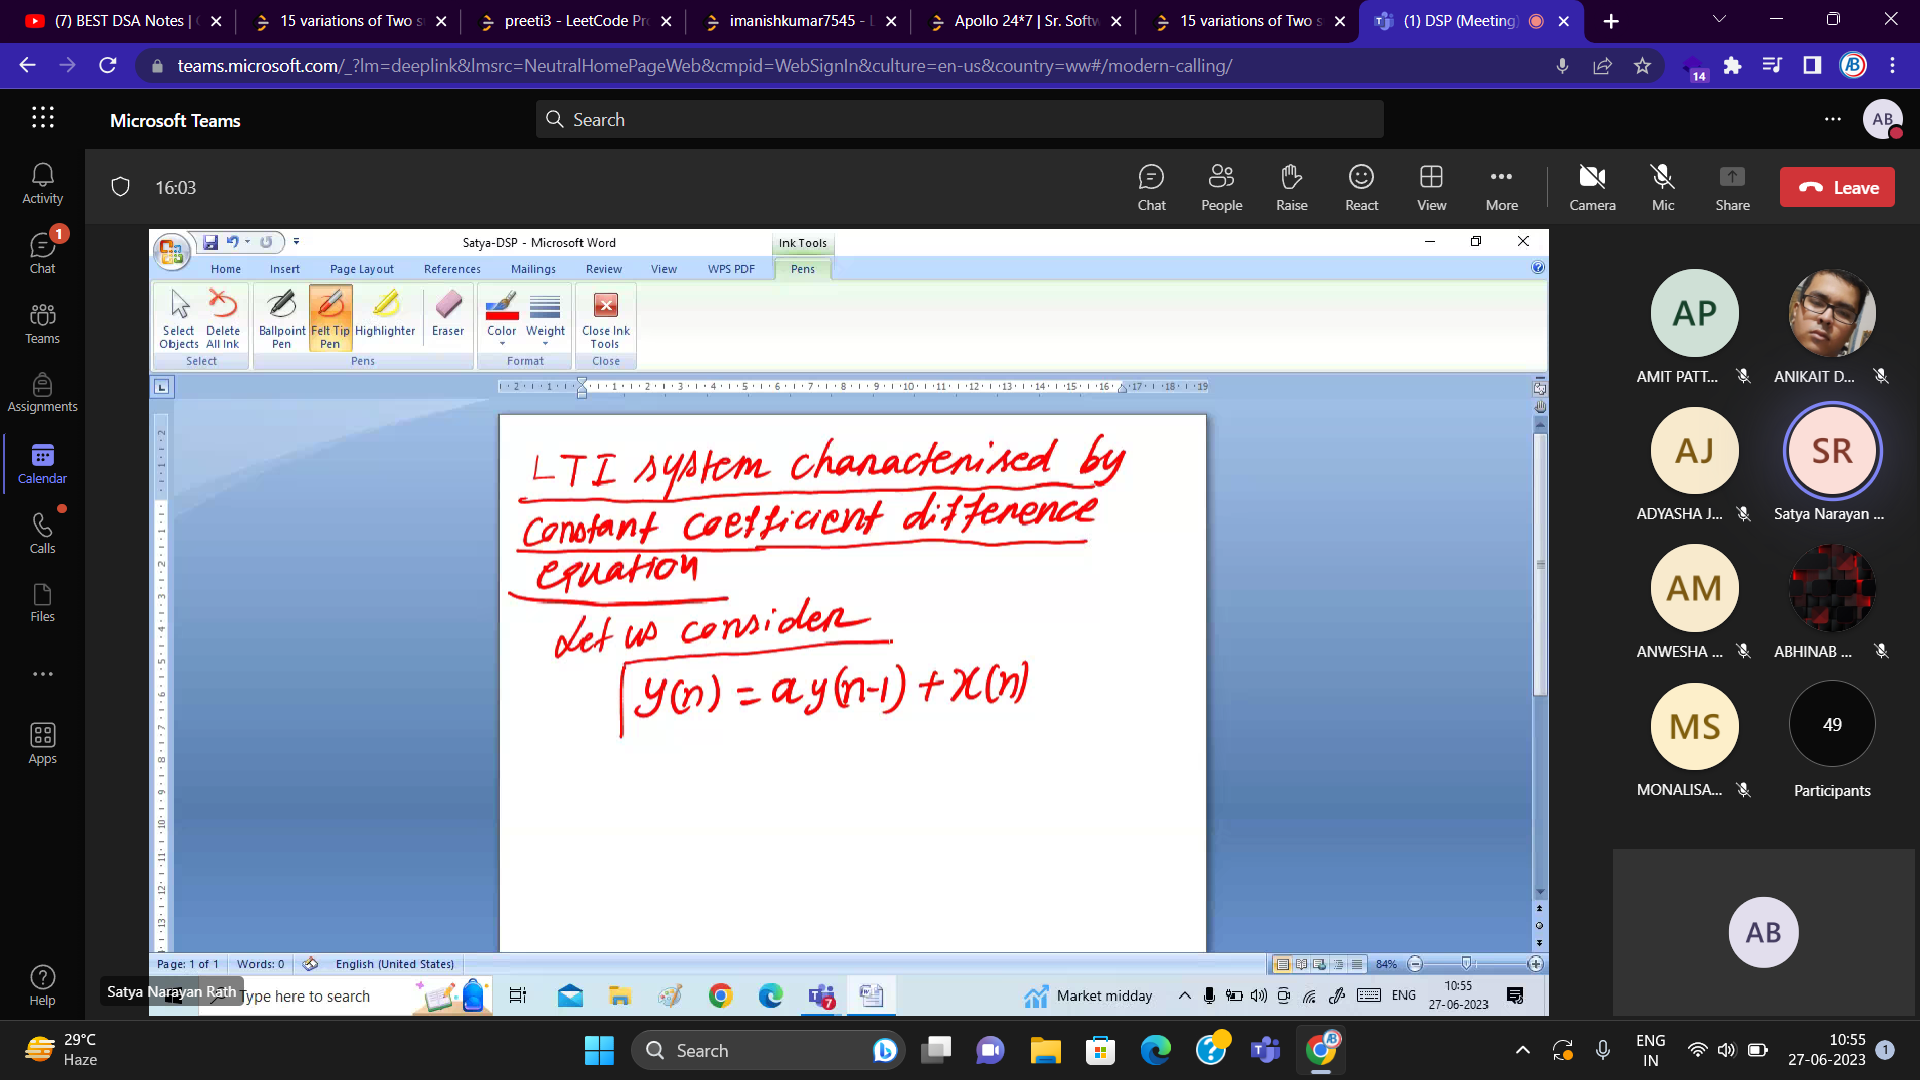 (7) BEST DSA Notes |
15 variations of Two s
preeti3 - LeetCode Pr
imanishkumar7545 - L
Apollo 24*7 | Sr. Softw
15 variations of Two s
(1) DSP (Meeting)
teams.microsoft.com/_?lm=deeplink&lmsrc=NeutralHomePageWeb&cmpid=WebSignIn&culture=en-us&country=ww#/modern-calling/
14
AB
Microsoft Teams
Search
AB
16:03
Chat
People
Raise
React
View
More
Camera
Mic
Share
Leave
Activity
1
Chat
Teams
Assignments
Calendar
Calls
Files
Apps
Help
Satya-DSP - Microsoft Word
Ink Tools
Home Insert Page Layout References Mailings Review View WPS PDF Pens
Select Objects
Delete All Ink
Ballpoint Pen
Felt Tip Pen
Highlighter
Eraser
Color
Weight
Close Ink Tools
Select
Pens
Format
Close
LTI system characterised by
constant coefficient difference
equation
Let us consider
y(n) = a y(n-1) + x(n)
Page: 1 of 1 Words: 0 English (United States)
84%
Satya Narayan Rath
Type here to search
7
Market midday
ENG
10:55
27-06-2023
AP
AMIT PATT...
ANIKAIT D...
AJ
ADYASHA J...
SR
Satya Narayan ...
AM
ANWESHA ...
ABHINAB ...
MS
MONALISA...
49
Participants
AB
29°C
Haze
Search
ENG
IN
10:55
27-06-2023
1